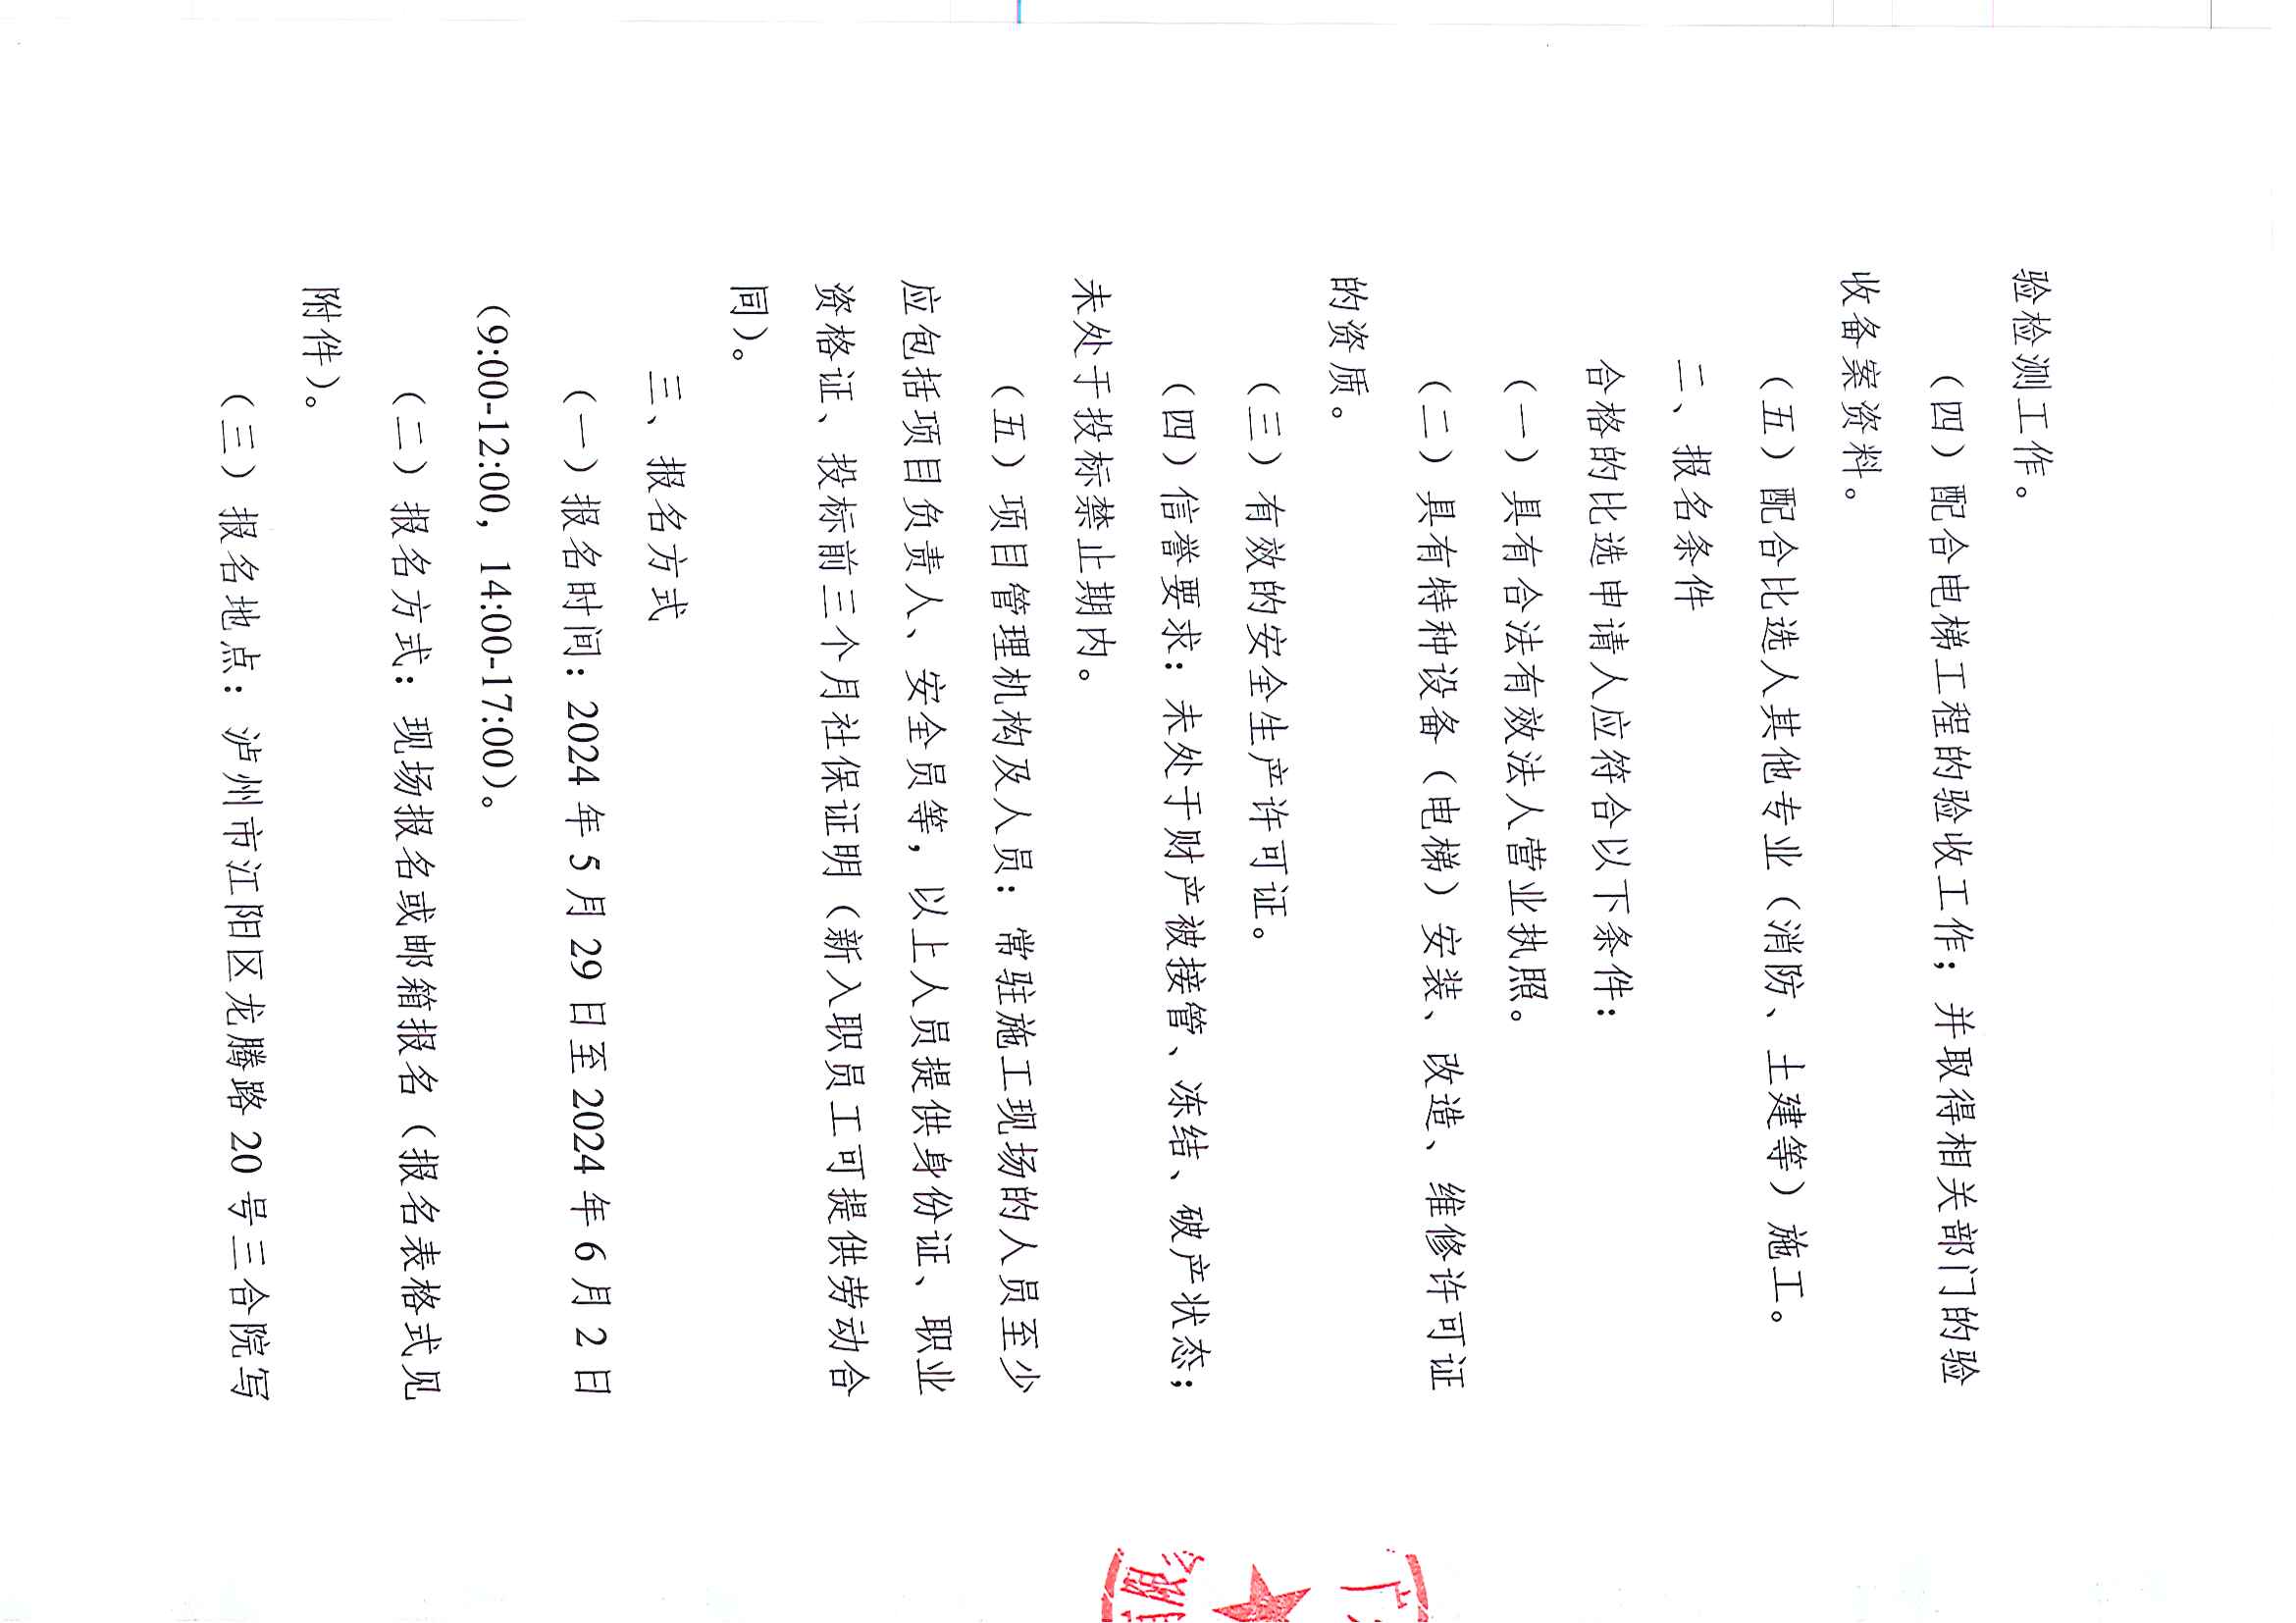 验检测工作。
（四）配合电梯工程的验收工作；并取得相关部门的验
收备案资料。
（五）配合比选人其他专业（消防、土建等）施工。
二、报名条件
合格的比选申请人应符合以下条件：
（一）具有合法有效法人营业执照。
（二）具有特种设备（电梯）安装、改造、维修许可证
的资质。
（三）有效的安全生产许可证。
（四）信誉要求：未处于财产被接管、冻结、破产状态；
未处于投标禁止期内。
（五）项目管理机构及人员：常驻施工现场的人员至少
应包括项目负责人、安全员等，以上人员提供身份证、职业
资格证、投标前三个月社保证明（新入职员工可提供劳动合
同）。
三、报名方式
（一）报名时间：2024 年 5 月 29 日至 2024 年 6 月 2 日
（9:00-12:00，14:00-17:00）。
（二）报名方式：现场报名或邮箱报名（报名表格式见
附件）。
（三）报名地点：泸州市江阳区龙腾路 20 号三合院写